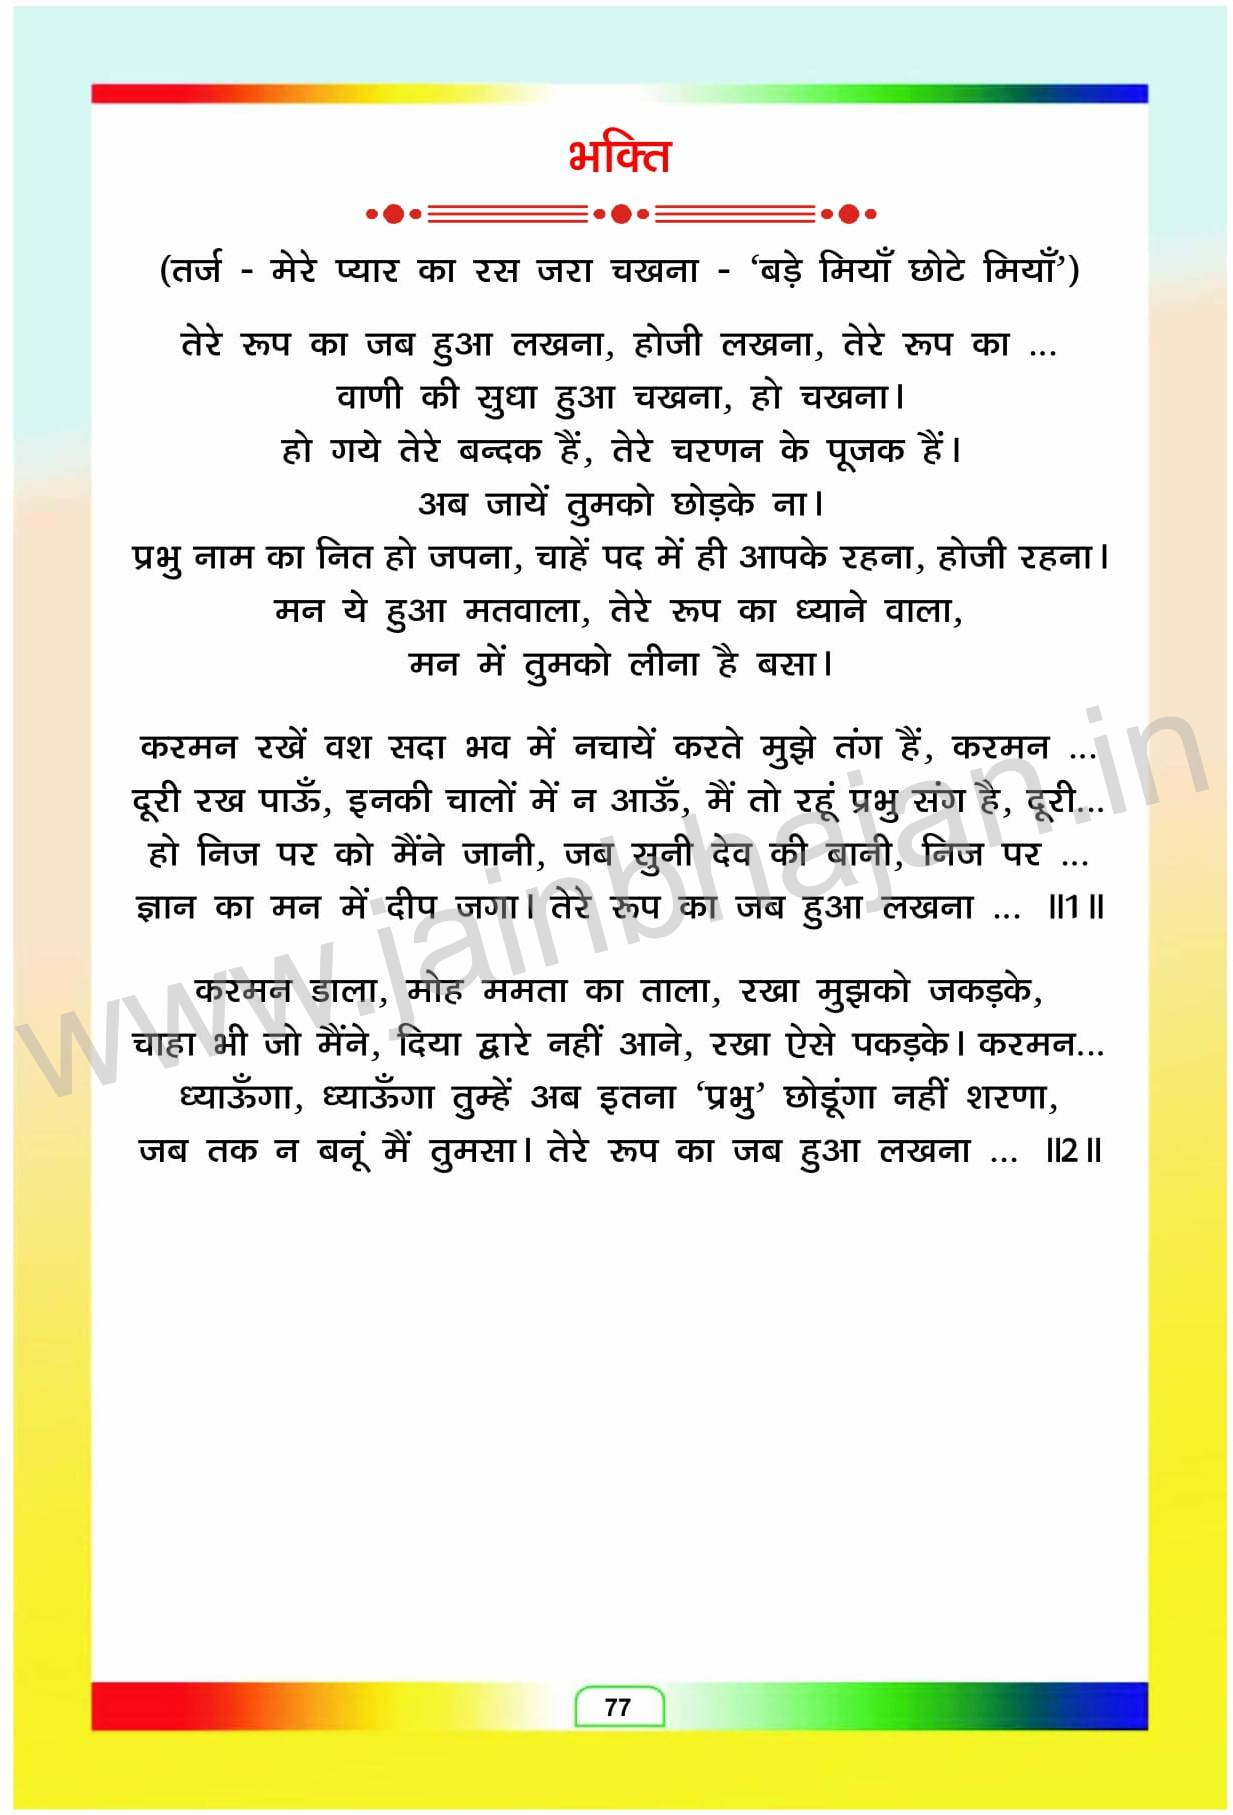 भक्ति
(तर्ज - मेरे प्यार का रस जरा चखना - ‘बड़े मियाँ छोटे मियाँ’)
तेरे रूप का जब हुआ लखना, होजी लखना, तेरे रूप का ...
वाणी की सुधा हुआ चखना, हो चखना।
हो गये तेरे बन्दक हैं, तेरे चरणन के पूजक हैं।
अब जायें तुमको छोड़के ना।
प्रभु नाम का नित हो जपना, चाहें पद में ही आपके रहना, होजी रहना।
मन ये हुआ मतवाला, तेरे रूप का ध्याने वाला,
मन में तुमको लीना है बसा।
करमन रखें वश सदा भव में नचायें करते मुझे तंग हैं, करमन ...
दूरी रख पाऊँ, इनकी चालों में न आऊँ, मैं तो रहूं प्रभु संग है, दूरी...
हो निज पर को मैंने जानी, जब सुनी देव की बानी, निज पर ...
ज्ञान का मन में दीप जगा। तेरे रूप का जब हुआ लखना ... ॥1॥
करमन डाला, मोह ममता का ताला, रखा मुझको जकड़के,
चाहा भी जो मैंने, दिया द्वारे नहीं आने, रखा ऐसे पकड़के। करमन...
ध्याऊँगा, ध्याऊँगा तुम्हें अब इतना ‘प्रभु’ छोडूंगा नहीं शरणा,
जब तक न बनूं मैं तुमसा। तेरे रूप का जब हुआ लखना ... ॥2॥
www.jainbhajan.in
77